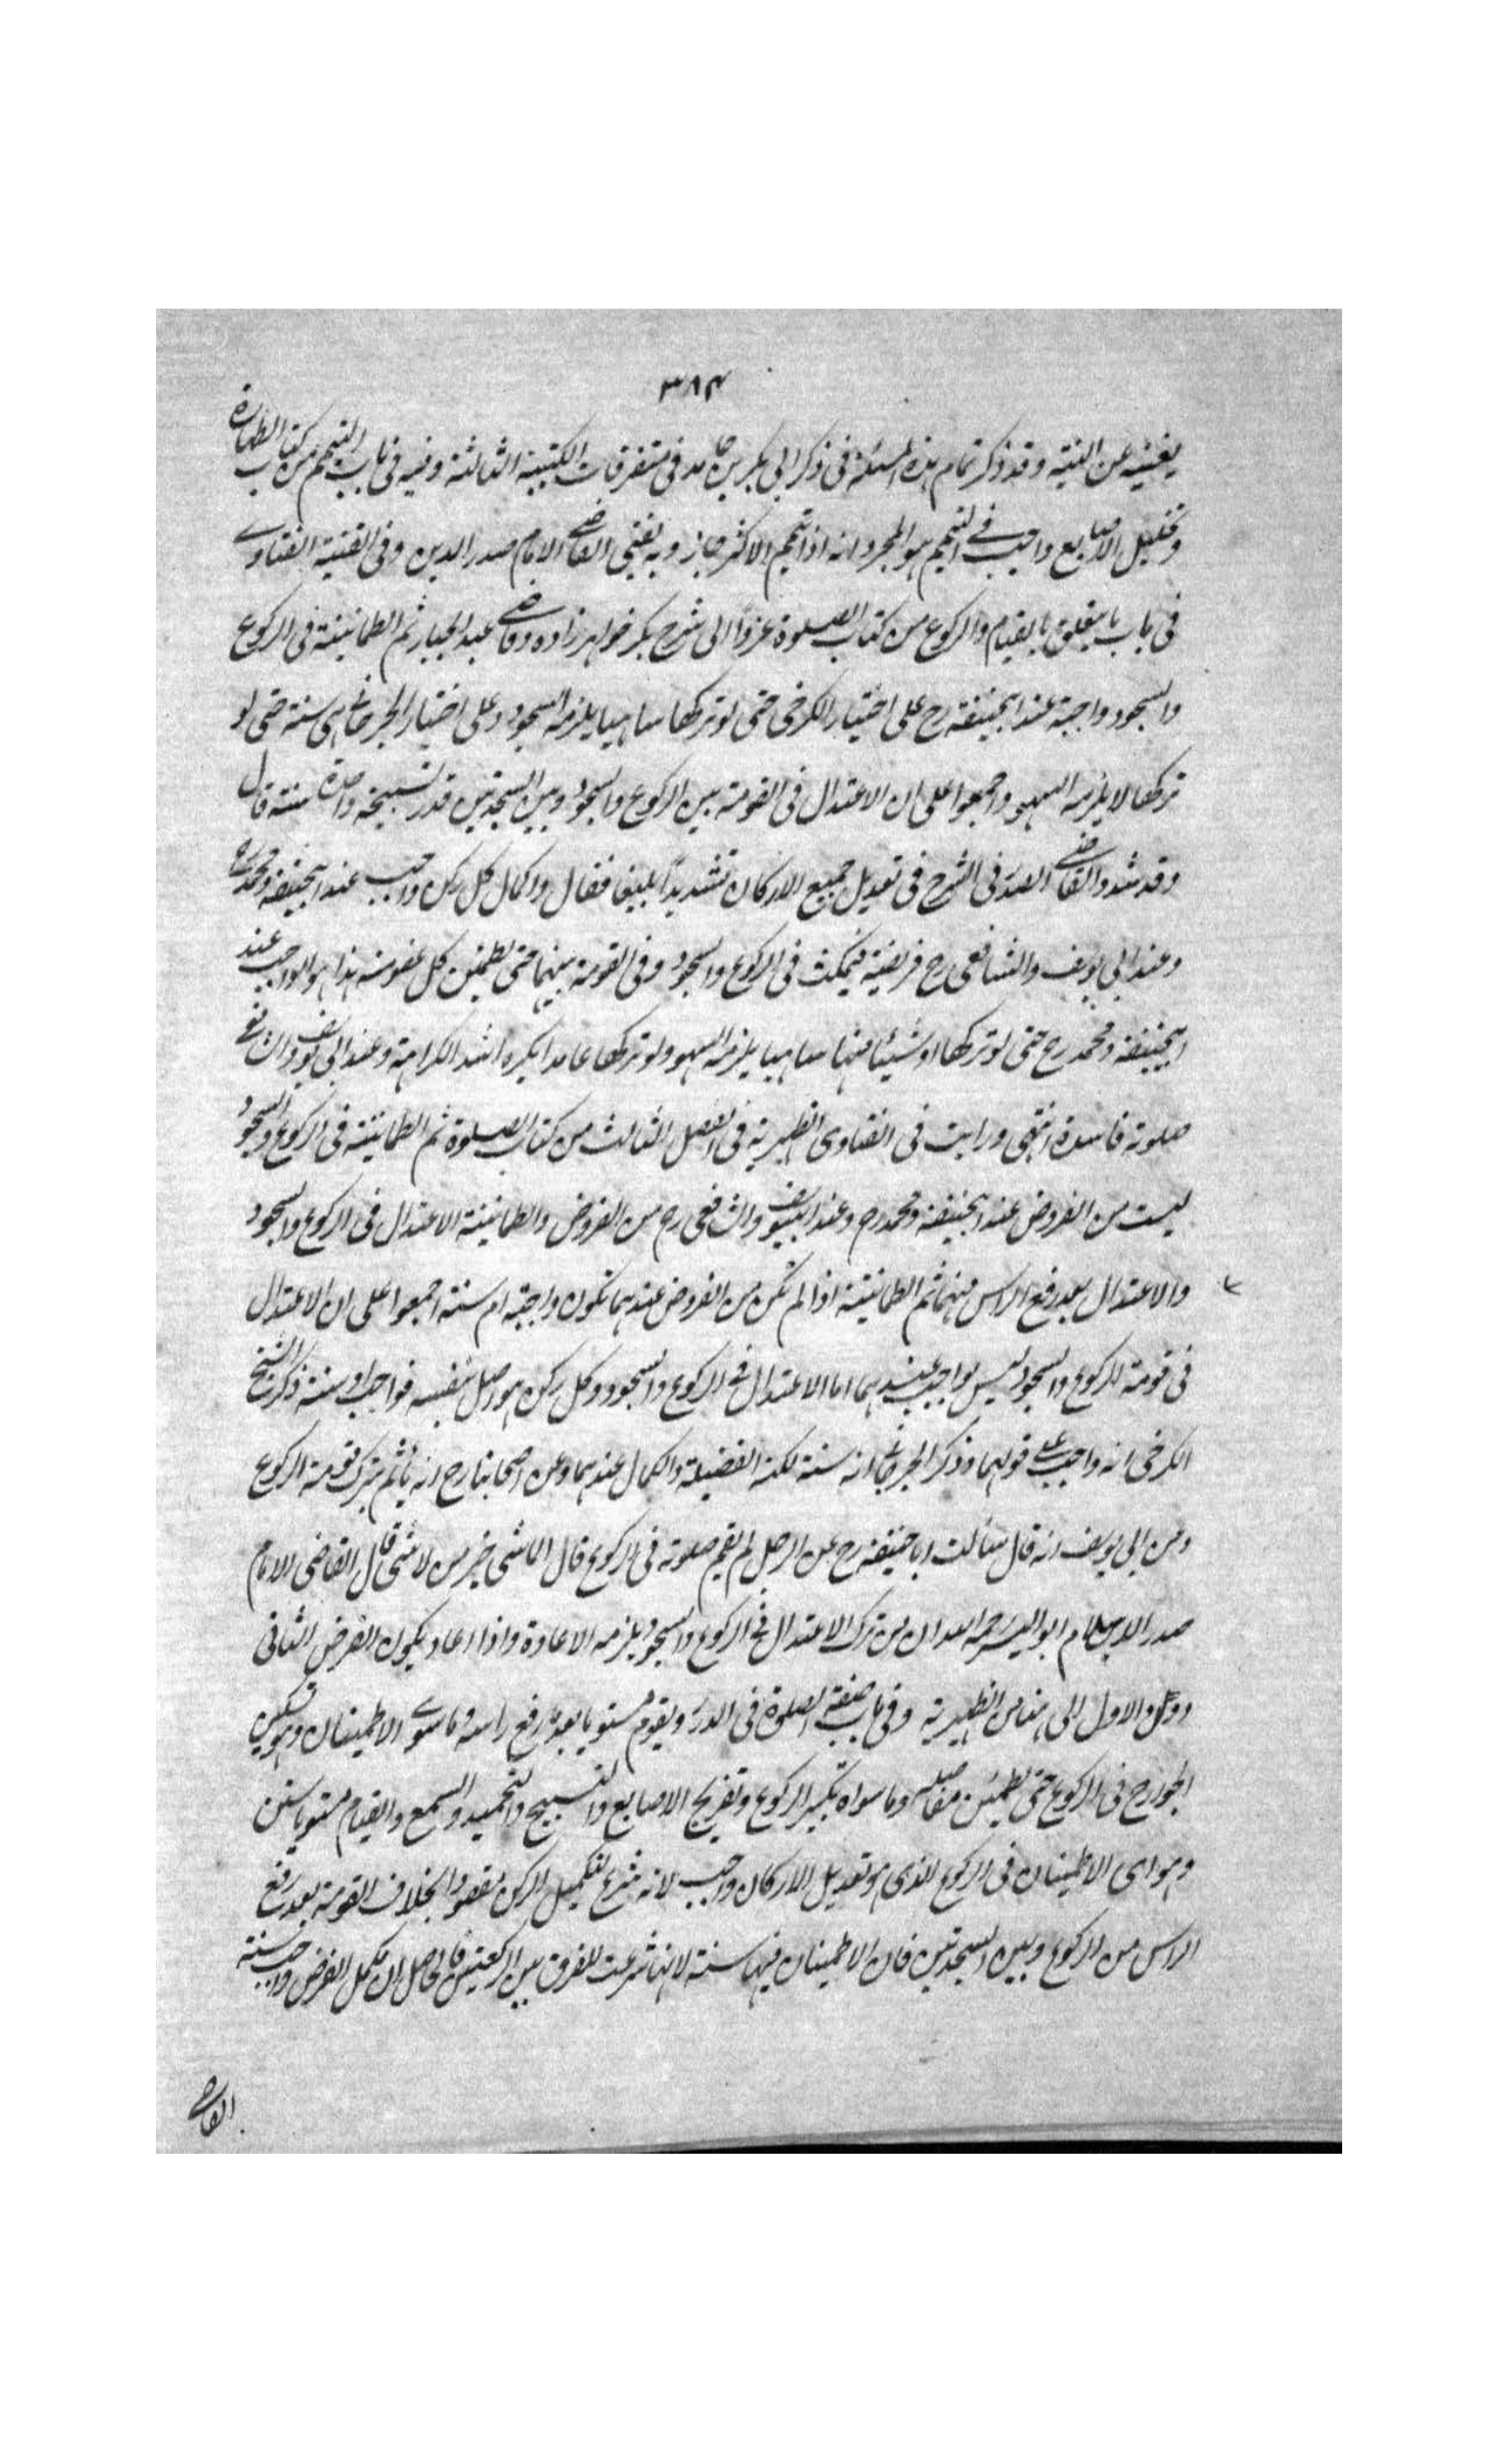 ۳۸۴
يغنيه عن النية وقد ذكر تمام هذه المسئلة فى ذكر ابى بكر بن حامد فى متفرقات الكتيبة الثالثة وفيه فى باب التيمم من كتاب الطهارة
وتخليل الاصابع واجب فے التيمم هو المجرد انه اذا تيمم الاكثر جاز وبه يفتى القاضے الامام صدر الدين وفى القنية الفتاوے
فى باب ما يتعلق بالقيام والركوع من كتاب الصلوة عزوًا الى شرح بكر خواهرزاده وقاضے عبد الجبار ثم الطمانينة فى الركوع
والسجود واجبة عند ابيحنيفة رح على اختيار الكرخى حتى لو تركها ساهيا يلزمه السجود وعلى اختيار الجرجانے هى سنة حتى لو
تركها لا يلزمه السهو واجمعوا على ان الاعتدال فى القومة بين الركوع والسجود وبين السجدتين قدر تسبيحة واحدة سنة قال
وقد شدد القاضے الصدر فى الشرح فى تعديل جميع الاركان تشديدًا بليغا فقال واكمال كل ركن واجب عند ابيحنيفة ومحمد رح
وعند ابى يوسف والشافعى رح فريضة فيمكث فى الركوع والسجود وفى القومة بينهما حتى يطمئن كل عضو منه هذا هو الواجب عند
ابيحنيفة ومحمد رح حتى لو تركها او شيئا منها ساهيا يلزمه السهو ولو تركها عامدا يكره اشد الكراهة وعند ابى يوسف والشافعے
صلوته فاسدة انتهى ورايت فى الفتاوى الظهيرية فى الفصل الثالث من كتاب الصلوة ثم الطمانينة فى الركوع والسجود
ليست من الفروض عند ابيحنيفة ومحمد رح وعند ابيوسف والشافعى رح من الفروض والطمانينة الاعتدال فى الركوع والسجود
والاعتدال بعد رفع الراس منهما ثم الطمانينة اذا لم تكن من الفروض عندهما تكون واجبة ام سنة اجمعوا على ان الاعتدال
فى قومة الركوع والسجود ليس بواجب عندهما اما الاعتدال فے الركوع والسجود وكل ركن هو اصل بنفسه فواجب او سنة ذكر الشيخ
الكرخى انه واجب علے قولهما وذكر الجرجانے انه سنة لكنه الفضيلة والكمال عندهما وعن اصحابنا رح انه ياثم بترك قومة الركوع
وعن ابى يوسف انه قال سألت ابا حنيفة رح عن الرجل لم يقم صلوته فى الركوع قال الاشى خير من لا شى قال القاضى الامام
صدر الاسلام ابو اليسر رحمه الله ان من ترك الاعتدال فے الركوع والسجود يلزمه الاعادة واذا اعاد يكون الفرض الثانى
دون الاول الى هنا من الظهيرية وفى باب صفة الصلوة فى الدرر ويقوم مستويا بعد رفع راسه وما سوے الاطمينان وهو تسكين
الجوارح فى الركوع حتى يطمئن مفاصله وما سواه تكبير الركوع وتفريج الاصابع والتسبيح والتحميد والسمع والقيام مستويا سنن
وهو اى الاطمينان فى الركوع الذى هو تعديل الاركان واجب لانه شرع لتكميل الركن مقصودا بخلاف القومة بعد رفع
الراس من الركوع وبين السجدتين فان الاطمينان فيها سنة لانها شرعت للفرق بين الركعتين فالحاصل ان مكمل الفرض واجب وسنة
القاضے